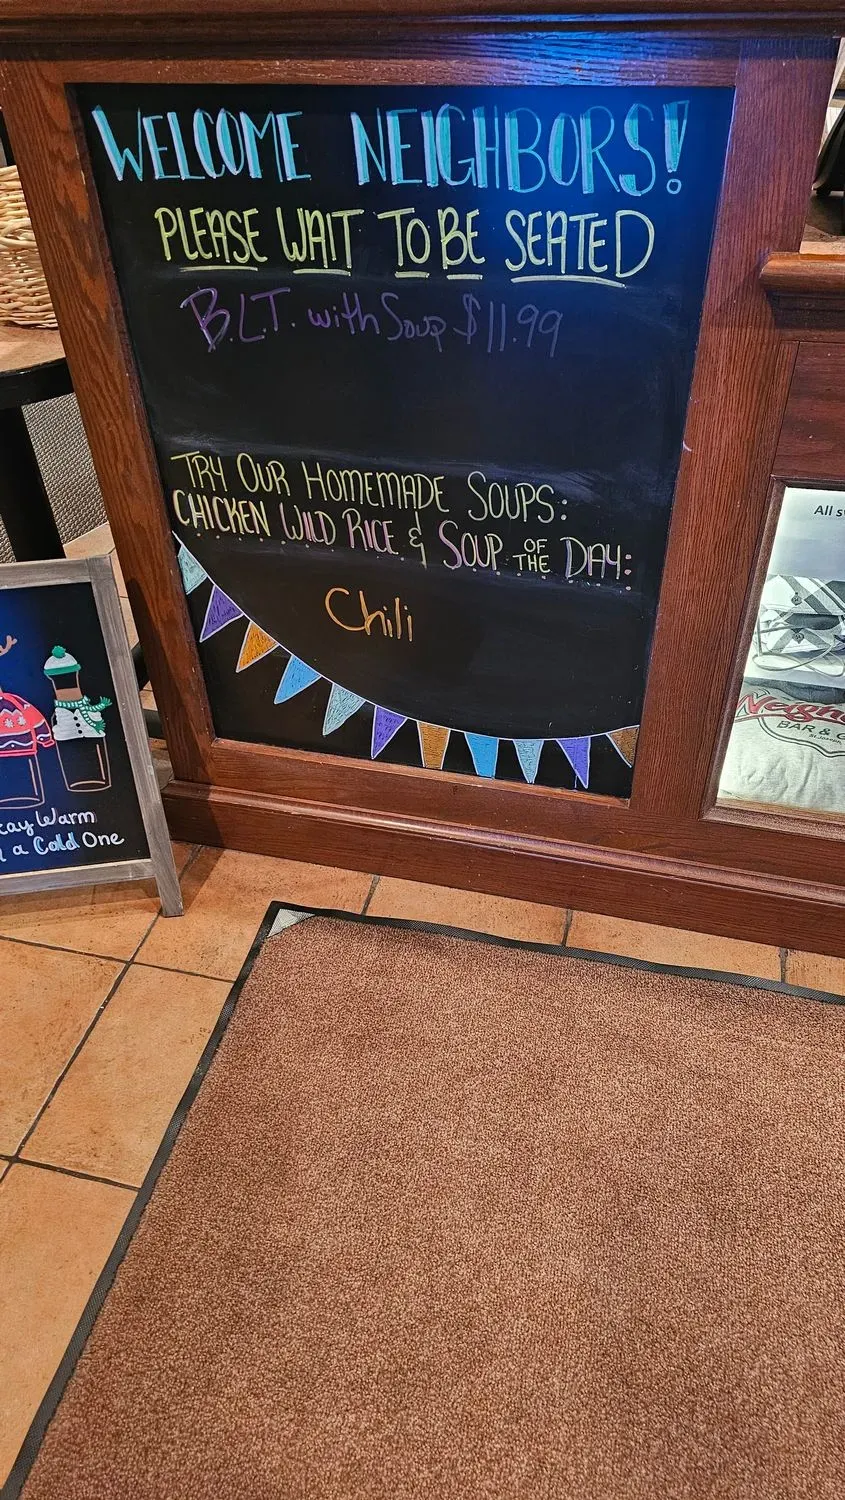 WELCOME NEIGHBORS!
PLEASE WAIT TO BE SEATED
B.L.T. with Soup $11.99
TRY OUR HOMEMADE SOUPS:
CHICKEN WILD RICE & SOUP OF THE DAY:
Chili
Warm
a Cold One
All
BAR &